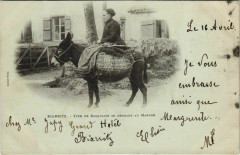 Le 16 Avril
Je Vous
embrasse
ainsi que
Marguerite.
BIARRITZ. - TYPE DE BASQUAISE SE RENDANT AU MARCHÉ
chez Mr
Grand Hôtel
Biarritz